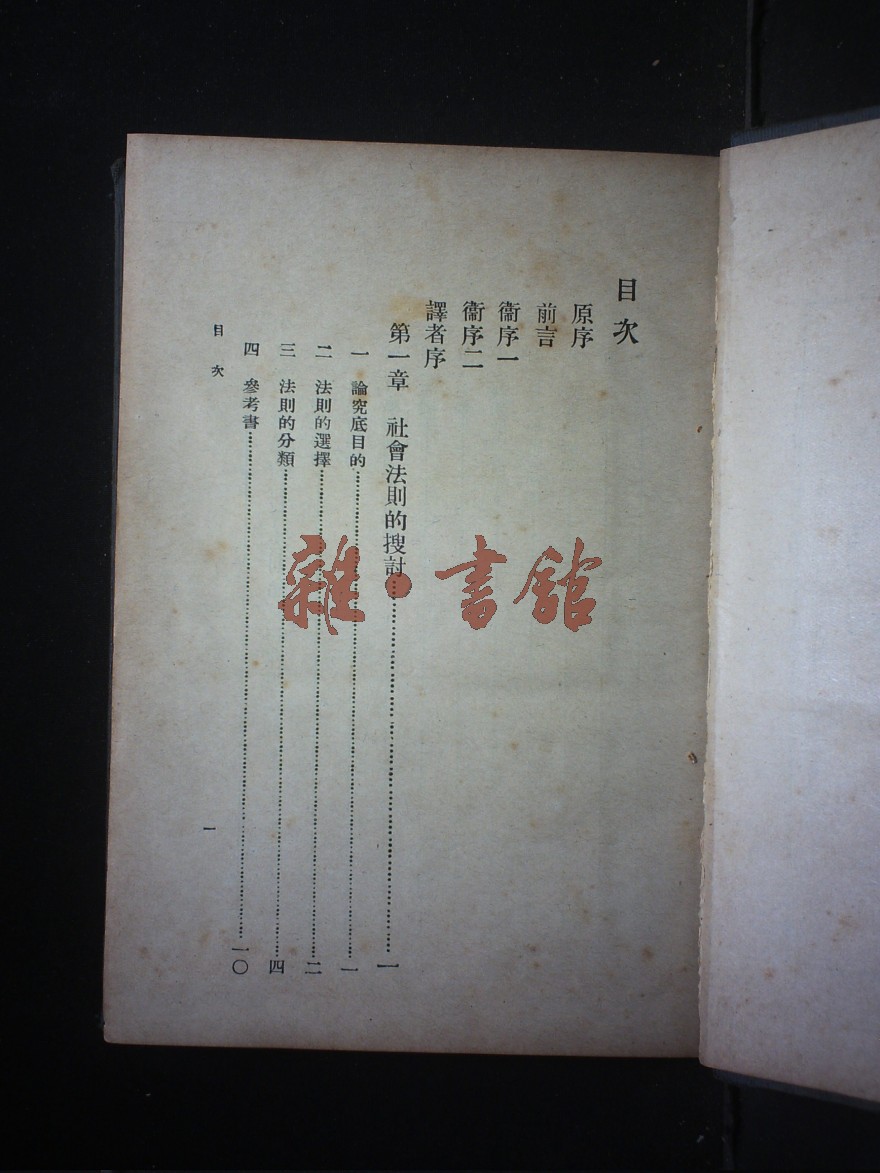 目次
原序
前言
衞序一
衞序二
譯者序
第一章 社會法則的搜討……一
一 論究底目的……一
二 法則的選擇……二
三 法則的分類……四
四 參考書……一〇
目次 一
雜·書館